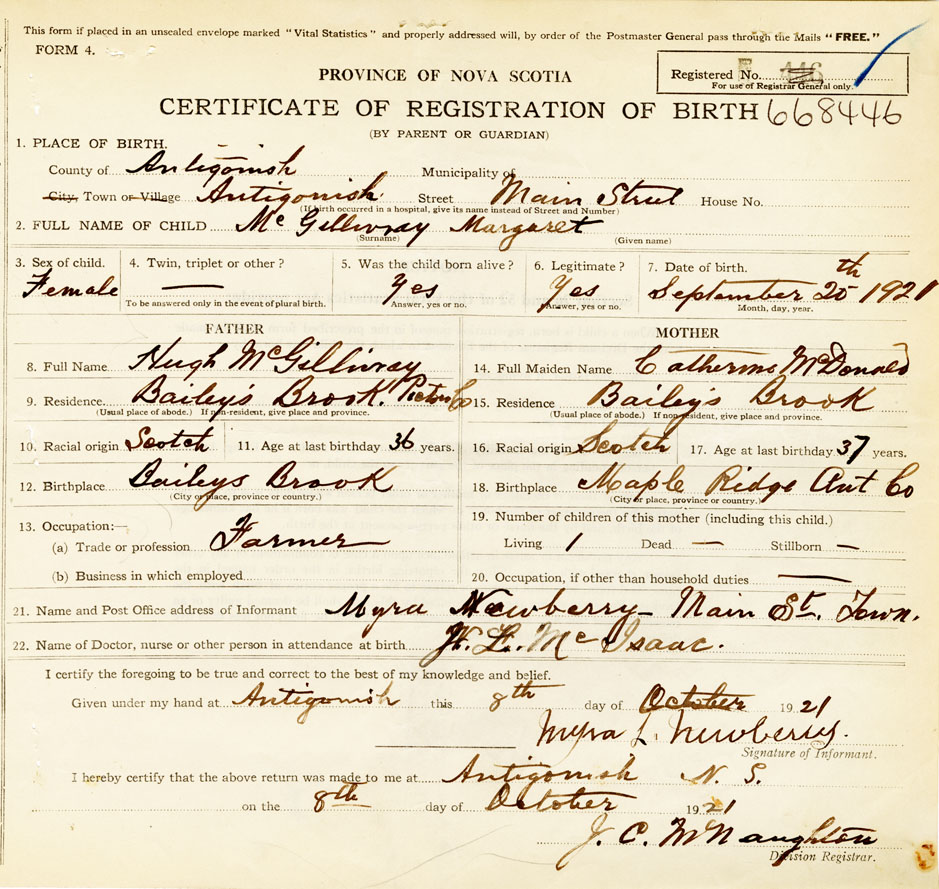 This form if placed in an unsealed envelope marked "Vital Statistics" and properly addressed will, by order of the Postmaster General pass through the Mails "FREE."
FORM 4.
Registered No. 446
For use of Registrar General only.
PROVINCE OF NOVA SCOTIA
CERTIFICATE OF REGISTRATION OF BIRTH 668446
(BY PARENT OR GUARDIAN)
1. PLACE OF BIRTH.
County of Antigonish Municipality of
City, Town or Village Antigonish Street Main Street House No.
(If birth occurred in a hospital, give its name instead of Street and Number)
2. FULL NAME OF CHILD McGillivray Margaret
(Surname) (Given name)
3. Sex of child. 4. Twin, triplet or other? 5. Was the child born alive? 6. Legitimate? 7. Date of birth.
Female — Yes Yes September 25th 1921
To be answered only in the event of plural birth. Answer, yes or no. Answer, yes or no. Month, day, year.
FATHER MOTHER
8. Full Name Hugh McGillivray 14. Full Maiden Name Catherine McDonald
9. Residence Bailey's Brook. Pictou Co 15. Residence Bailey's Brook
(Usual place of abode.) If non-resident, give place and province. (Usual place of abode.) If non-resident, give place and province.
10. Racial origin Scotch 11. Age at last birthday 36 years. 16. Racial origin Scotch 17. Age at last birthday 37 years.
12. Birthplace Baileys Brook 18. Birthplace Maple Ridge Ant Co
(City or place, province or country.) (City or place, province or country.)
13. Occupation:— 19. Number of children of this mother (including this child.)
(a) Trade or profession Farmer Living 1 Dead — Stillborn —
(b) Business in which employed 20. Occupation, if other than household duties —
21. Name and Post Office address of Informant Myra Newberry — Main St. Town.
22. Name of Doctor, nurse or other person in attendance at birth McIsaac.
I certify the foregoing to be true and correct to the best of my knowledge and belief.
Given under my hand at Antigonish this 8th day of October 1921
Myra L. Newberry.
Signature of Informant.
I hereby certify that the above return was made to me at Antigonish N. S.
on the 8th day of October 1921
J. C. McNaughton
Division Registrar.